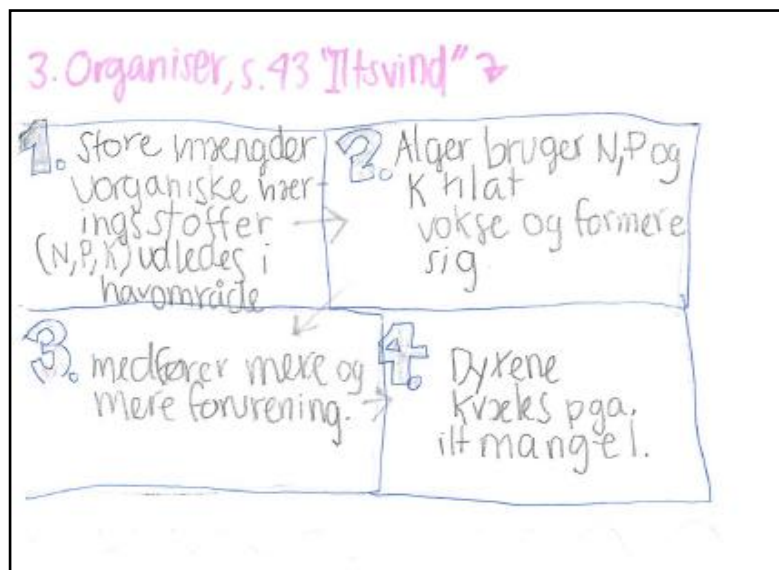 3. Organiser, s. 43 "Iltsvind"
1. Store mængder
uorganiske nær-
ingsstoffer
(N, P, K) udledes i
havområde
2. Alger bruger N, P og
K til at
vokse og formere
sig
3. medfører mere og
mere forurening.
4. Dyrene
kvæles pga.
iltmangel.